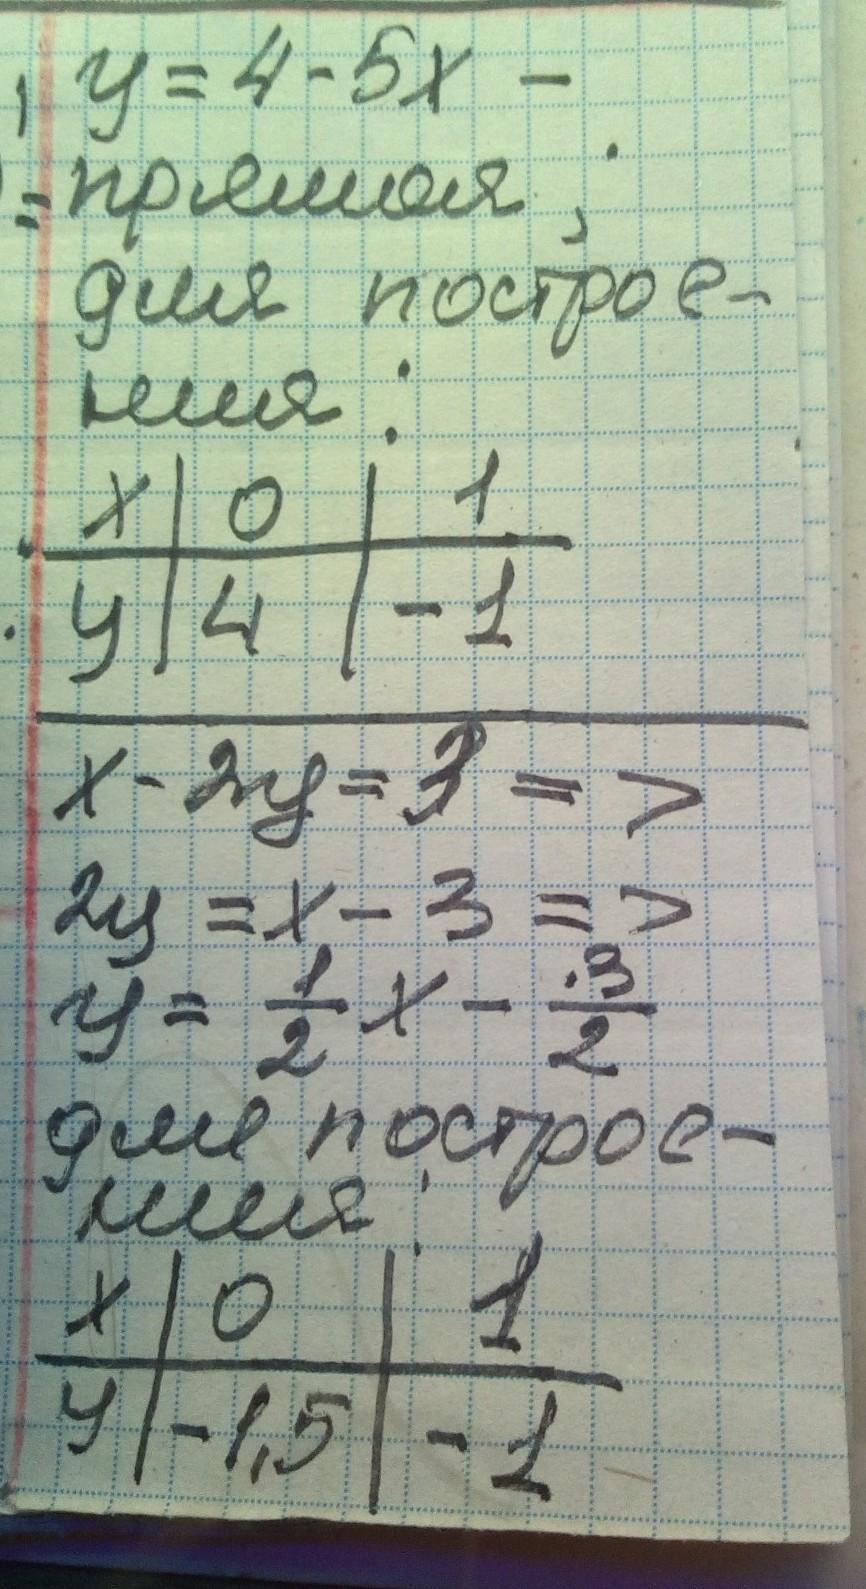 y = 4 - 5x -
прямая ;
для построе-
ния :
x | 0 | 1
y | 4 | -1
x - 2y = 3 = >
2y = x - 3 = >
y = 1/2 x - 3/2
для построе-
ния :
x | 0 | 1
y | -1,5 | -1